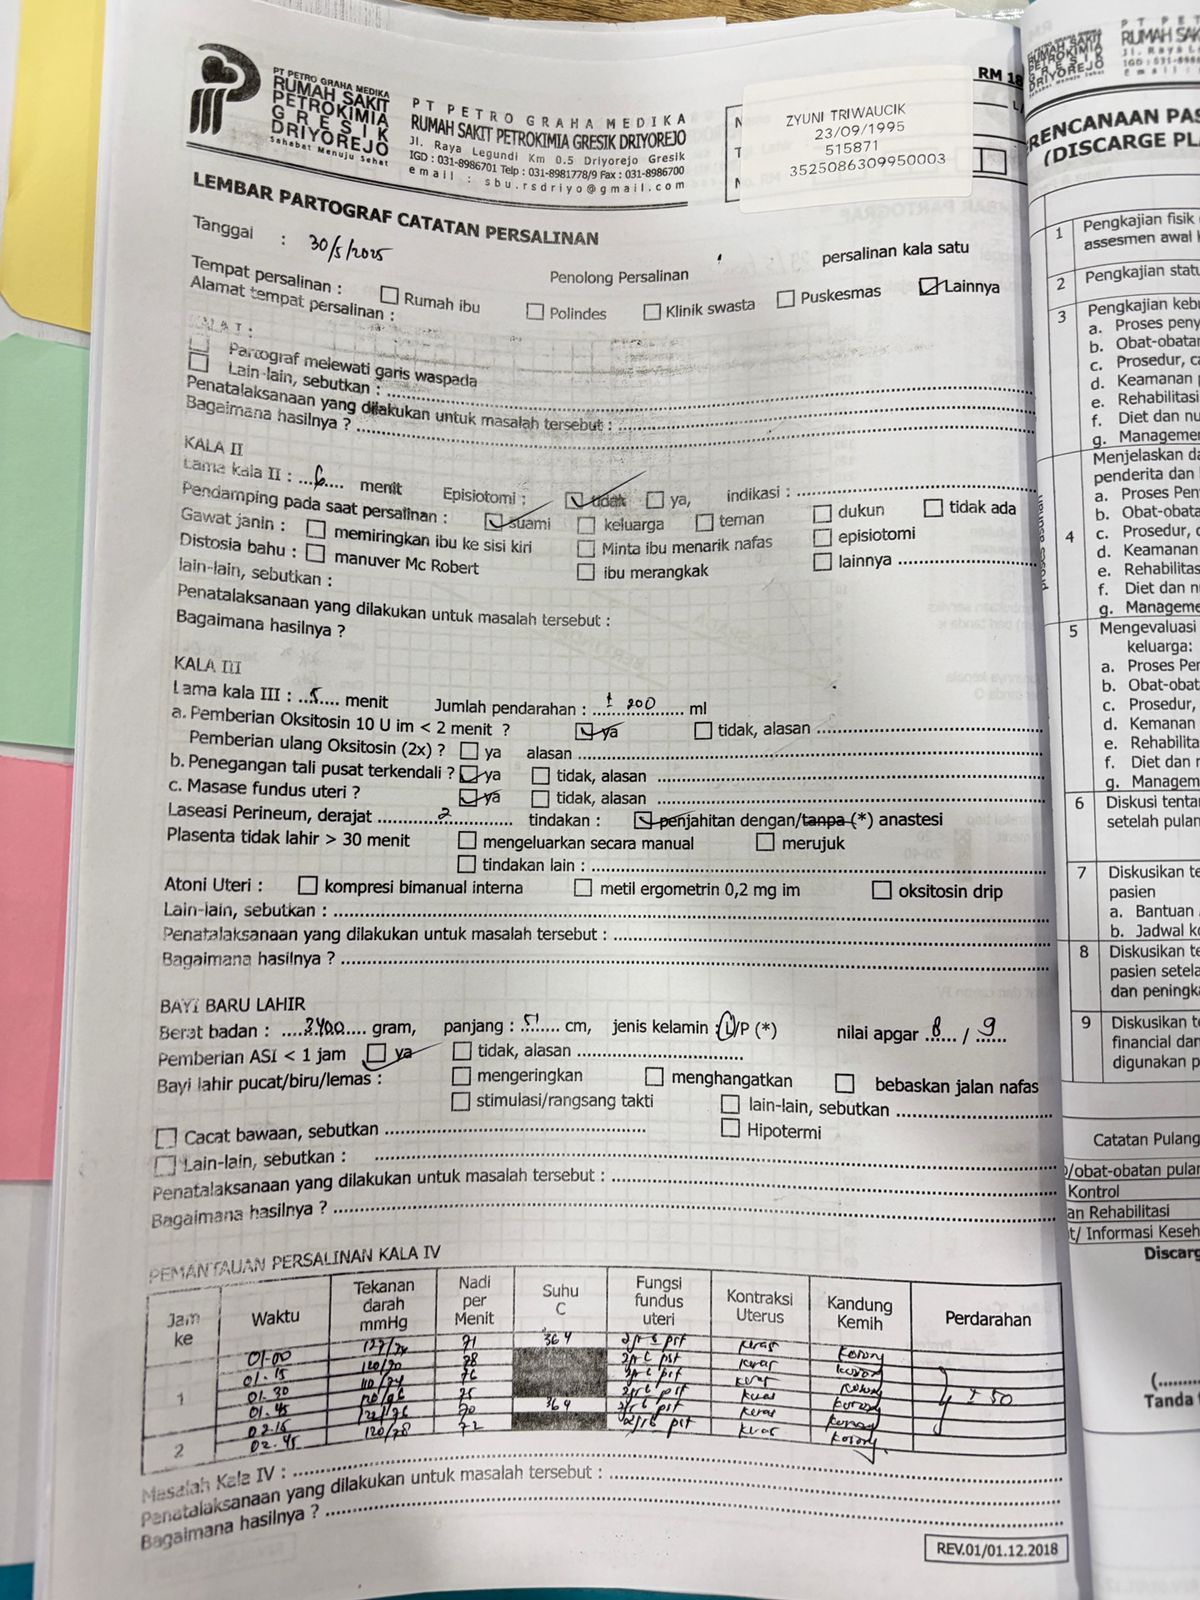 PT PETRO GRAHA MEDIKA
RUMAH SAKIT
PETROKIMIA
GRESIK
DRIYOREJO
Sahabat Menuju Sehat
PT PETRO GRAHA MEDIKA
RUMAH SAKIT PETROKIMIA GRESIK DRIYOREJO
Jl. Raya Legundi Km 0.5 Driyorejo Gresik
IGD : 031-8986701 Telp : 031-8981778/9 Fax : 031-8986700
email : sbu.rsdriyo@gmail.com
RM 18
ZYUNI TRIWAUCIK
23/09/1995
515871
3525086309950003
LEMBAR PARTOGRAF CATATAN PERSALINAN
Tanggal : 30/5/2025
Penolong Persalinan persalinan kala satu
Tempat persalinan : Rumah ibu Polindes Klinik swasta Puskesmas Lainnya
Alamat tempat persalinan :
KALA I :
Partograf melewati garis waspada
Lain-lain, sebutkan :
Penatalaksanaan yang dilakukan untuk masalah tersebut :
Bagaimana hasilnya ?
KALA II
Lama kala II : 6 menit Episiotomi : tidak ya, indikasi :
Pendamping pada saat persalinan : suami keluarga teman dukun tidak ada
Gawat janin : memiringkan ibu ke sisi kiri Minta ibu menarik nafas episiotomi
Distosia bahu : manuver Mc Robert ibu merangkak lainnya
lain-lain, sebutkan :
Penatalaksanaan yang dilakukan untuk masalah tersebut :
Bagaimana hasilnya ?
KALA III
Lama kala III : 5 menit Jumlah pendarahan : ± 200 ml
a. Pemberian Oksitosin 10 U im < 2 menit ? ya tidak, alasan
Pemberian ulang Oksitosin (2x) ? ya alasan
b. Penegangan tali pusat terkendali ? ya tidak, alasan
c. Masase fundus uteri ? ya tidak, alasan
Laseasi Perineum, derajat 2 tindakan : penjahitan dengan/tanpa (*) anastesi
Plasenta tidak lahir > 30 menit mengeluarkan secara manual merujuk
tindakan lain :
Atoni Uteri : kompresi bimanual interna metil ergometrin 0,2 mg im oksitosin drip
Lain-lain, sebutkan :
Penatalaksanaan yang dilakukan untuk masalah tersebut :
Bagaimana hasilnya ?
BAYI BARU LAHIR
Berat badan : 3400 gram, panjang : 51 cm, jenis kelamin : L/P (*) nilai apgar 8 / 9
Pemberian ASI < 1 jam ya tidak, alasan
Bayi lahir pucat/biru/lemas : mengeringkan menghangatkan bebaskan jalan nafas
stimulasi/rangsang takti lain-lain, sebutkan
Cacat bawaan, sebutkan Hipotermi
Lain-lain, sebutkan :
Penatalaksanaan yang dilakukan untuk masalah tersebut :
Bagaimana hasilnya ?
PEMANTAUAN PERSALINAN KALA IV
Jam ke Waktu Tekanan darah mmHg Nadi per Menit Suhu C Fungsi fundus uteri Kontraksi Uterus Kandung Kemih Perdarahan
01.00 71 364 2jr b pst keras kosong
1 01.15 120/70 78 2jr b pst keras kosong
01.30 110/74 76 2jr b pst keras kosong
01.45 75 2jr b pst keras kosong ± 50
02.15 70 364 2jr b pst keras kosong
2 02.45 120/78 72 2jr b pst keras kosong
Masalah Kala IV :
Penatalaksanaan yang dilakukan untuk masalah tersebut :
Bagaimana hasilnya ?
REV.01/01.12.2018
RUMAH SAK
Jl. Raya L
GRESIK
DRIYOREJO
RENCANAAN PAS
(DISCHARGE PL
1 Pengkajian fisik
assesmen awal
2 Pengkajian stat
3 Pengkajian keb
a. Proses peny
b. Obat-obatan
c. Prosedur, c
d. Keamanan
e. Rehabilitasi
f. Diet dan nu
g. Manageme
proses asuhan
4 Menjelaskan da
penderita dan
a. Proses Pen
b. Obat-obata
c. Prosedur,
d. Keamanan
e. Rehabilita
f. Diet dan n
g. Manageme
5 Mengevaluasi
keluarga:
a. Proses Per
b. Obat-obat
c. Prosedur,
d. Kemanan
e. Rehabilita
f. Diet dan
g. Managem
6 Diskusi tenta
setelah pular
7 Diskusikan te
pasien
a. Bantuan
b. Jadwal k
8 Diskusikan te
pasien setela
dan peningka
9 Diskusikan te
financial dar
digunakan p
Catatan Pulang
/obat-obatan pular
Kontrol
an Rehabilitasi
t/ Informasi Keseh
Discarg
(
Tanda